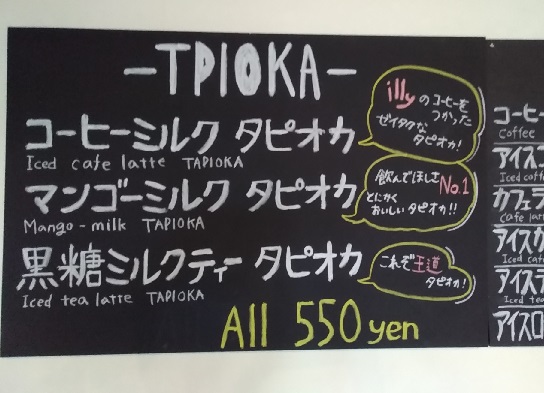 -TPIOKA-
コーヒーミルク タピオカ
Iced cafe latte TAPIOKA
illyのコーヒーを
つかった
ゼイタクな
タピオカ!
マンゴーミルク タピオカ
Mango-milk TAPIOKA
飲んでほしさ No.1
とにかく
おいしい タピオカ!!
黒糖ミルクティー タピオカ
Iced tea latte TAPIOKA
これぞ王道
タピオカ!
All 550 yen
コーヒ
Coffee
アイスコ
Iced coff
カフェラ
Cafe latte
アイスカ
Iced cafe
アイステ
Iced tea
アイスロ